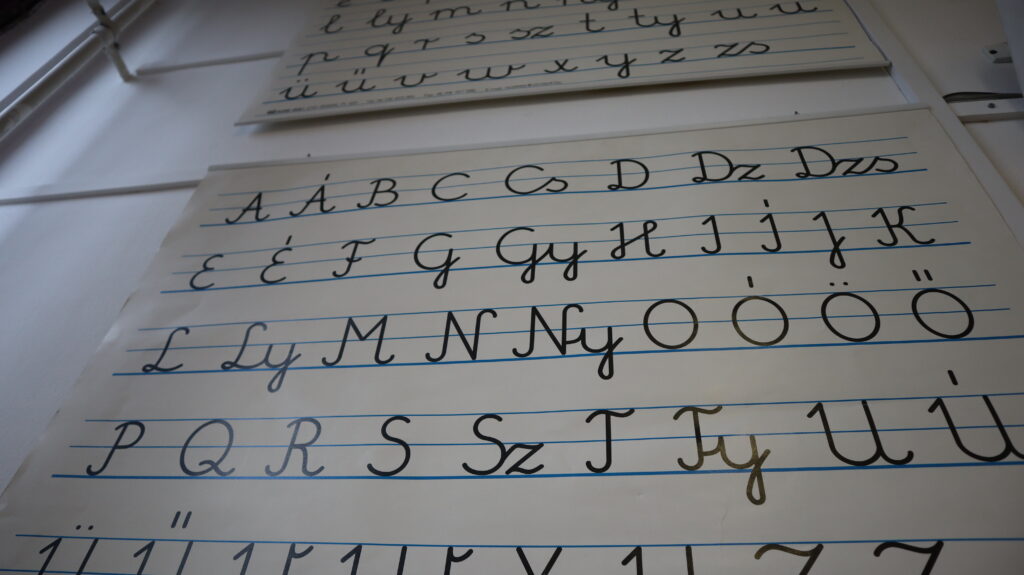 l ly m n ny
p q r s sz t ty u ú
ü ű v w x y z zs
A Á B C Cs D Dz Dzs
E É F G Gy H I Í J K
L Ly M N Ny O Ó Ö Ő
P Q R S Sz T Ty U Ú
Ü Ű V W X Y Z